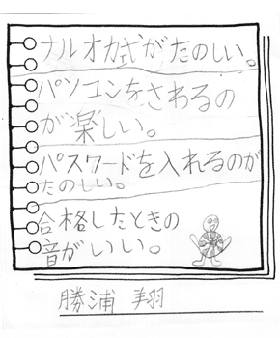 ナルオカ式がたのしい。
パソコンをさわるの
が楽しい。
パスワードを入れるのが
たのしい。
合格したときの
音がいい。
勝浦 翔